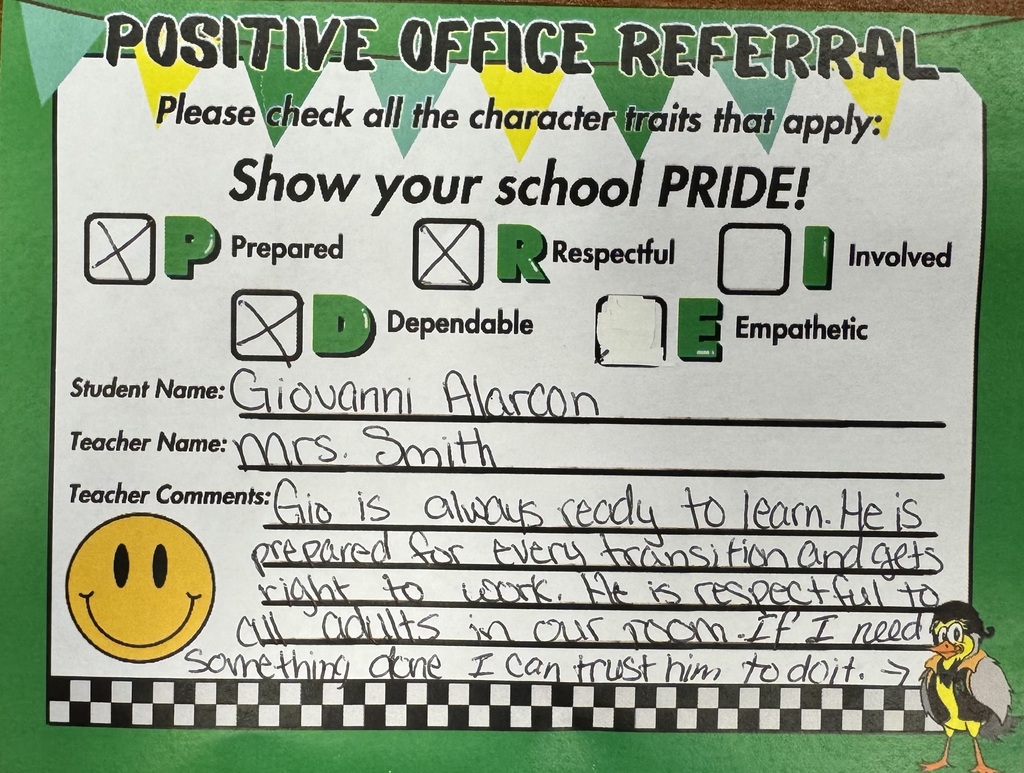 POSITIVE OFFICE REFERRAL
Please check all the character traits that apply:
Show your school PRIDE!
P Prepared R Respectful I Involved
D Dependable E Empathetic
Student Name: Giovanni Alarcon
Teacher Name: Mrs. Smith
Teacher Comments: Gio is always ready to learn. He is
prepared for every transition and gets
right to work. He is respectful to
all adults in our room. If I need
something done I can trust him to do it. →